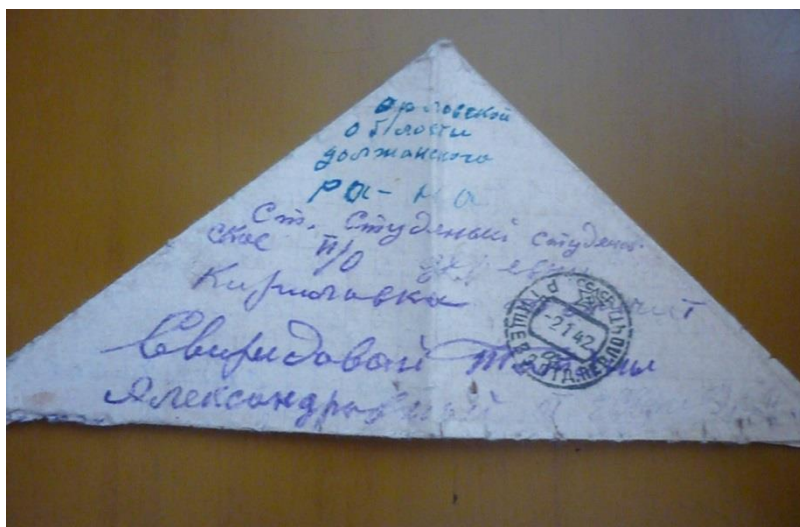 Орловской
области
должанского
ра-на
Ст. Студяный Студенов-
ское п/о деревня
Кирилловка
Свиридовой
Александровной
-2 1 42